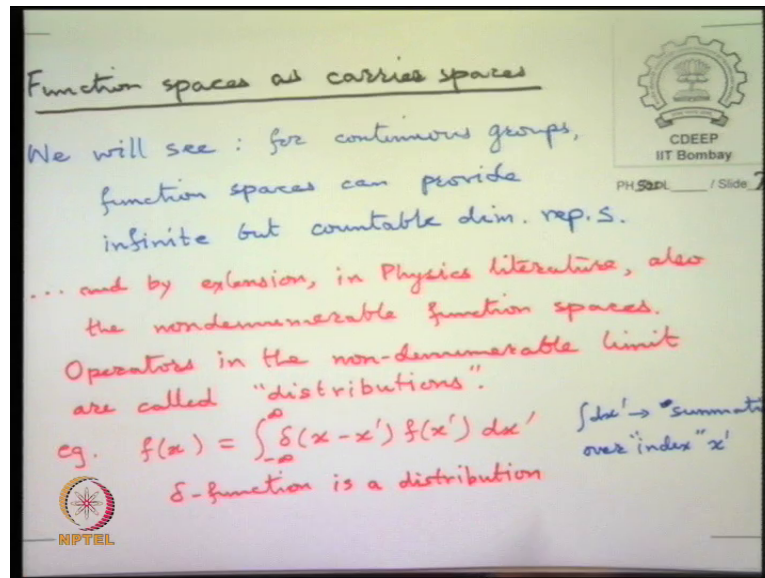 Function spaces as carries spaces
We will see : for continuous groups,
function spaces can provide
infinite but countable dim. rep.s.
... and by extension, in Physics literature, also
the nondenumerable function spaces.
Operators in the non-denumerable limit
are called "distributions".
eg. f(x) = ∫_{-∞}^{∞} δ(x-x') f(x') dx'
∫dx' → "summati
over "index" x'
δ-function is a distribution
CDEEP
IIT Bombay
PH / Slide
NPTEL